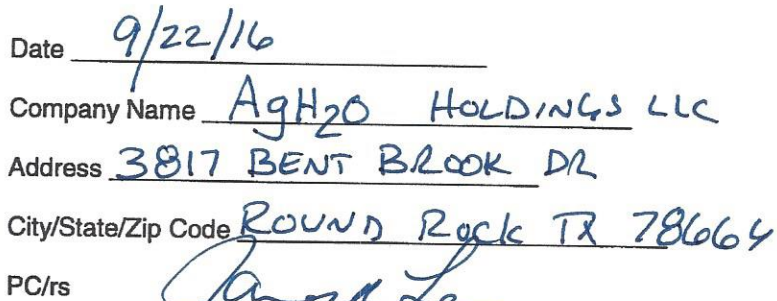 Date 9/22/16
Company Name AgH2O HOLDINGS LLC
Address 3817 BENT BROOK DR
City/State/Zip Code ROUND ROCK TX 78664
PC/rs